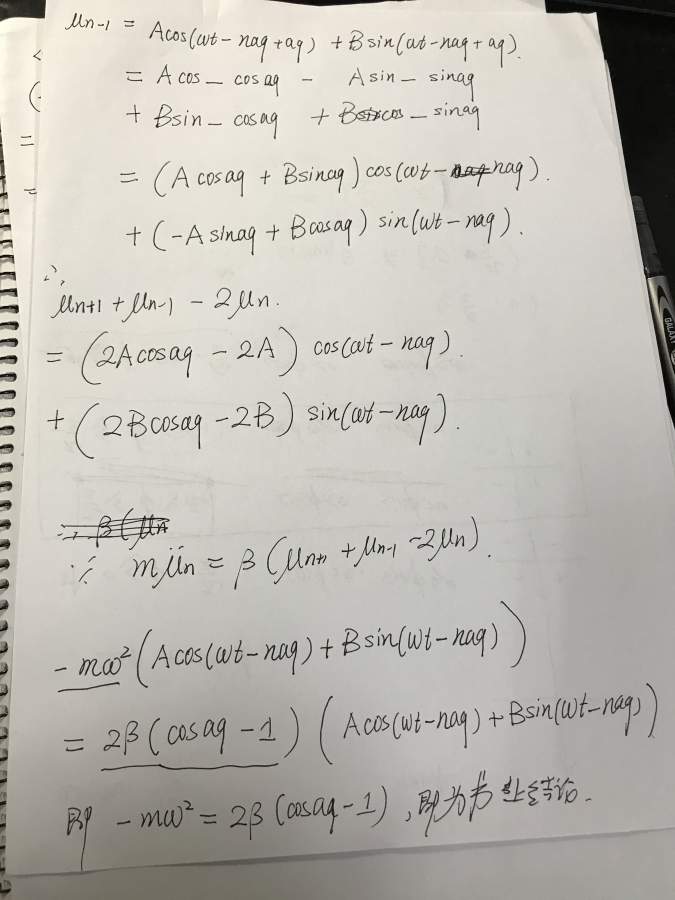 μn-1 = Acos(ωt - naq + aq) + Bsin(ωt - naq + aq).
= A cos _ cosaq - A sin _ sinaq
+ Bsin _ cosaq + B cos _ sinaq
= (A cosaq + Bsinaq) cos(ωt - naq).
+ (-A sinaq + Bcosaq) sin(ωt - naq).
∴
μn+1 + μn-1 - 2μn.
= (2Acosaq - 2A) cos(ωt - naq).
+ (2Bcosaq - 2B) sin(ωt - naq).
∵ mμ̈n = β(μn+1 + μn-1 - 2μn).
- mω² (Acos(ωt - naq) + Bsin(ωt - naq))
= 2β(cosaq - 1) (Acos(ωt - naq) + Bsin(ωt - naq))
即 - mω² = 2β(cosaq - 1), 即为书上结论.
GALAXY